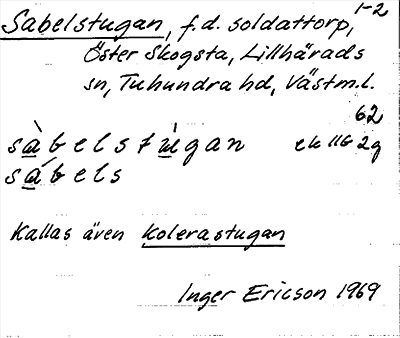 Sabelstugan, f.d. soldattorp, 1-2
Öster Skogsta, Lillhärads
sn, Tuhundra hd, Västm.l.
62
sàbelstùgan ek 11G 2g
sábels
Kallas även Kolerastugan
Inger Ericson 1969